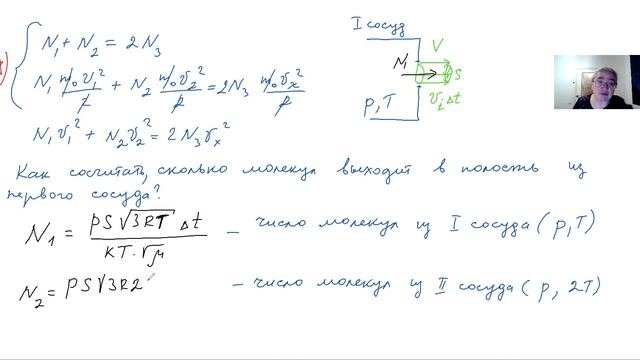 N₁ + N₂ = 2N₃
N₁ m₀v₁²/2 + N₂ m₀v₂²/2 = 2N₃ m₀vₓ²/2
N₁v₁² + N₂v₂² = 2N₃vₓ²
I сосуд
V
N₁
S
p, T
vᵢΔt
Как сосчитать, сколько молекул выходит в полость из
первого сосуда?
N₁ = pS√3RT Δt / kT·√μ – число молекул из I сосуда (p, T)
N₂ = pS√3R2 – число молекул из II сосуда (p, 2T)